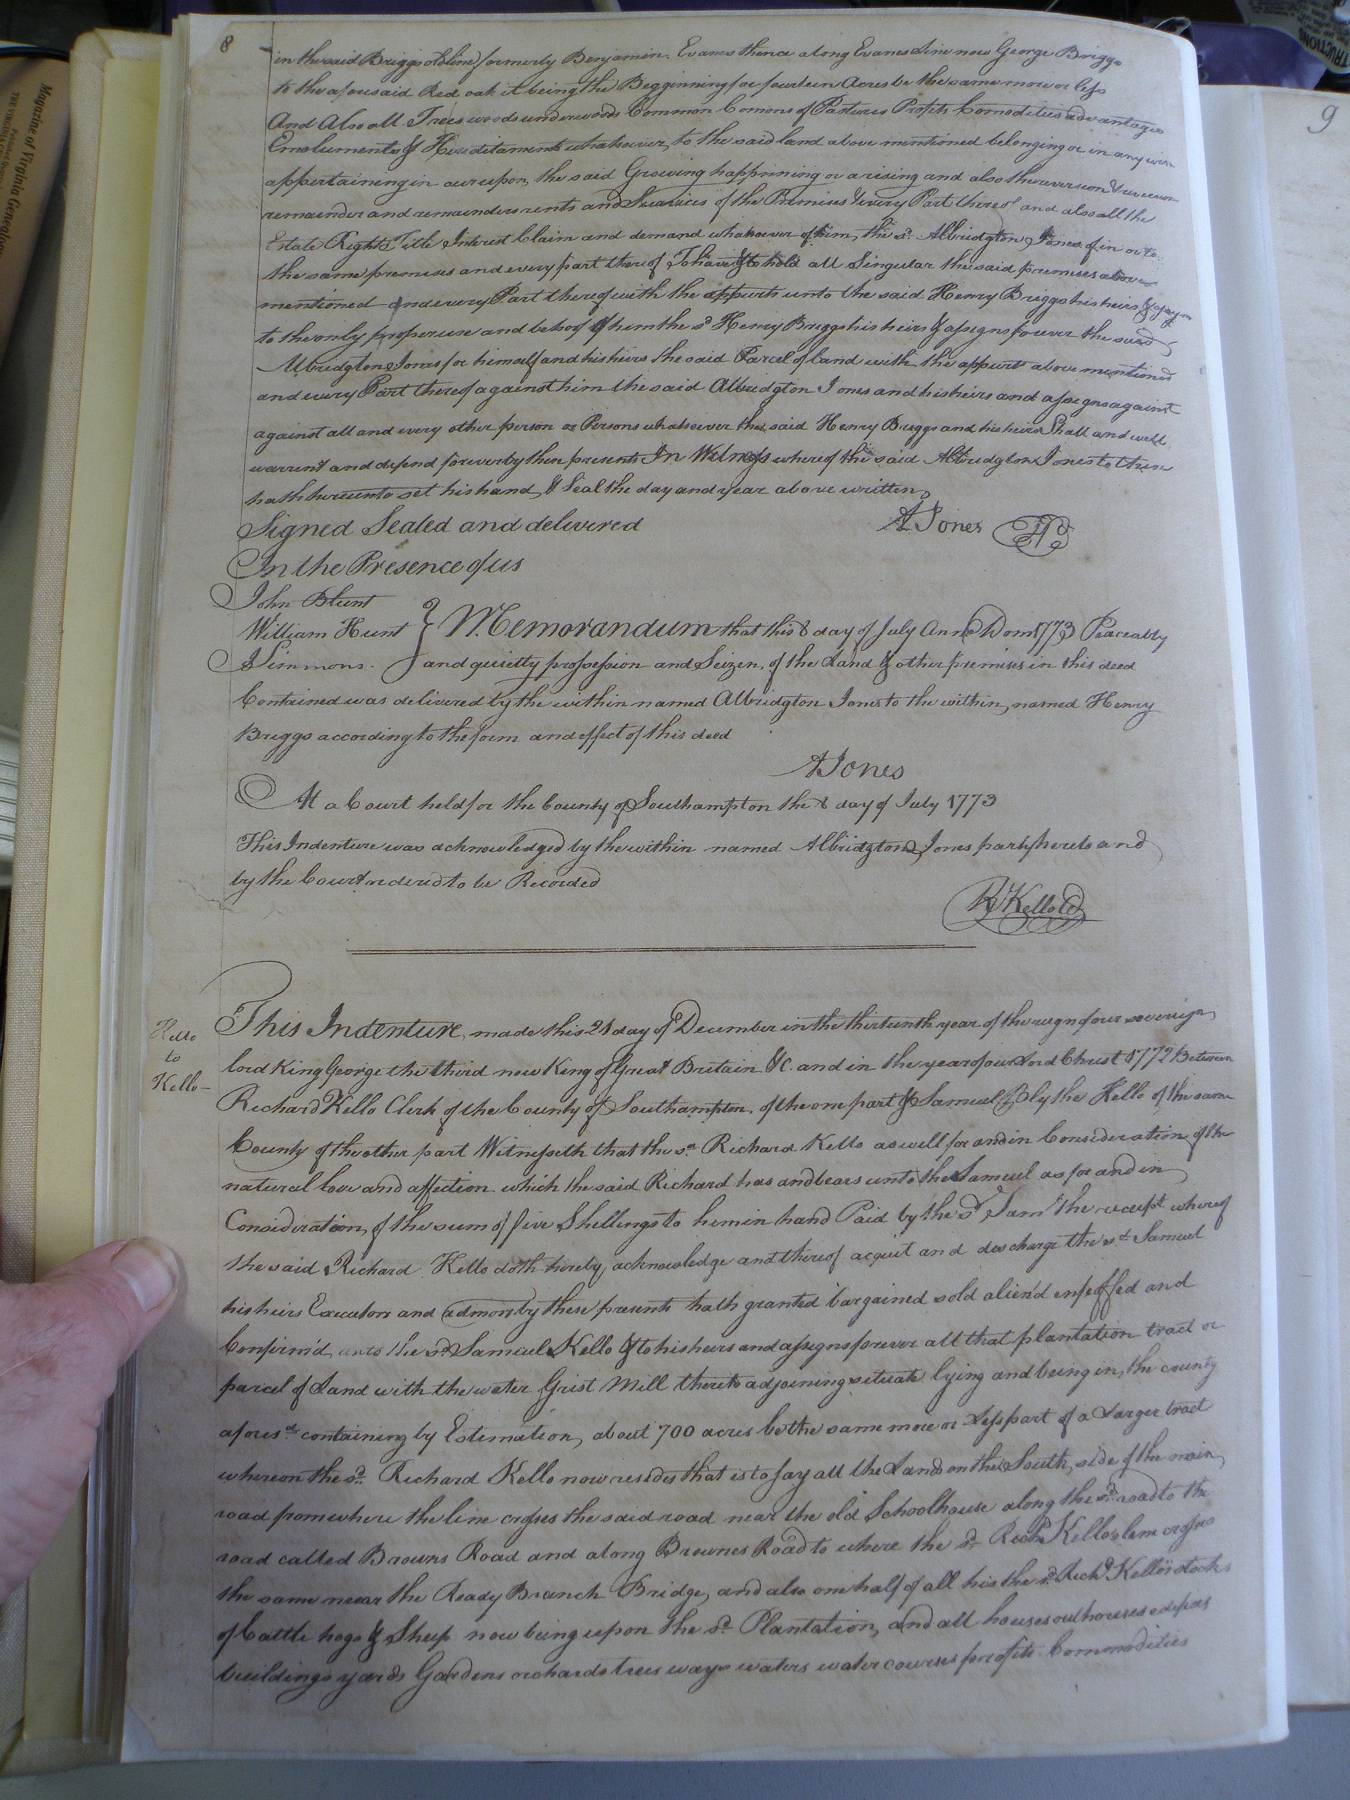 8
in the said Briggs old line formerly Benjamin Evans thence along Evans Line now George Briggs
to the aforesaid Red oak it being the Begginning for fourteen Acres be the same more or less
And Also all Trees woods underwoods Common Comons of Pastures Profits Comodities advantages
Emoluments & Hereditaments whatsoever, to the said land above mentioned belonging or in any wise
appertaining in or upon, the said Growing happning or arising and also the revercon & revercons
remainder and remainders rents and Services of the Premises & every Part thereof and also all the
Estate Right Title Interest Claim and demand whatsoever of him, the sd. Albridgton Jones of in or to
the same premises and every part thereof To have & to hold all Singular the said premises above
mentioned and every Part thereof with the appurts unto the said Henry Briggs his heirs & assigns
to the only proper use and behoof of him the sd Henry Briggs his heirs & assigns forever the said
Albridgton Jones for himself and his heirs the said Parcel of land with the appurts above mentioned
and every Part thereof against him the said Albridgton Jones and his heirs and assigns against
against all and every other person or Persons whatsoever the said Henry Briggs and his heirs Shall and will
warrent and defend forever by these presents In Witness whereof the said Albridgton Jones to these
hath hereunto set his hand & Seal the day and year above written
Signed Sealed and delivered A Jones
In the Presence of us
John Blunt
William Hunt } Memorandum that this 8 day of July Anno Dom 1773 Peaceably
J Simmons. and quietly possession and Seizen, of the Land & other premises in this deed
Contained was delivered by the within named Albridgton Jones to the within, named Henry
Briggs according to the form and effect of this deed
A Jones
At a Court held for the County of Southampton the 8 day of July 1773
This Indenture was acknowledged by the within named Albridgton Jones party hereto and
by the Court ordered to be Recorded
R Kello
Kello
to
Kello
This Indenture, made this 21 day of December in the thirteenth year of the reign of our sovereign
lord King George the third now King of Great Britain &C. and in the year of our Lord Christ 1772 Between
Richard Kello Clerk of the County of Southampton, of the one part & Samuel Blythe Kello of the same
County of the other part Witnesseth that the sd. Richard Kello as well for and in Consideration of the
natural love and affection which the said Richard has and bears unto the Samuel as for and in
Consideration, of the sum of five Shellings to hem in hand Paid by the sd. Saml the receipt whereof
the said Richard Kello doth hereby, acknowledge and thereof acquit and descharge the sd. Samuel
his heirs Executors and admors by these presents hath granted bargained sold alien'd enfeoffed and
Confirm'd unto the sd Samuel Kello & to his heirs and assigns forever all that plantation tract or
parcel of Land with the water Grist Mill thereto adjoining situate lying and being in, the county
aforesd. containing by Estimation, about 700 acres be the same more or Less part of a Larger tract
whereon the sd. Richard Kello now resides that is to say all the Lands on the South, side of the main
road from where the line crosses the said road near the old Schoolhouse along the sd. road to the
road called Browns Road and along Brownes Road to where the sd. Richd. Kello's line crosses
the same near the Ready Branch Bridge, and also one half of all his the sd. Richd. Kello's stocks
of Cattle hogs & Sheep now being upon the sd. Plantation, and all houses outhouses edifices
buildings yards Gardens orchards trees ways waters water courses profits Commodities
9
Magazine of Virginia Genealogy